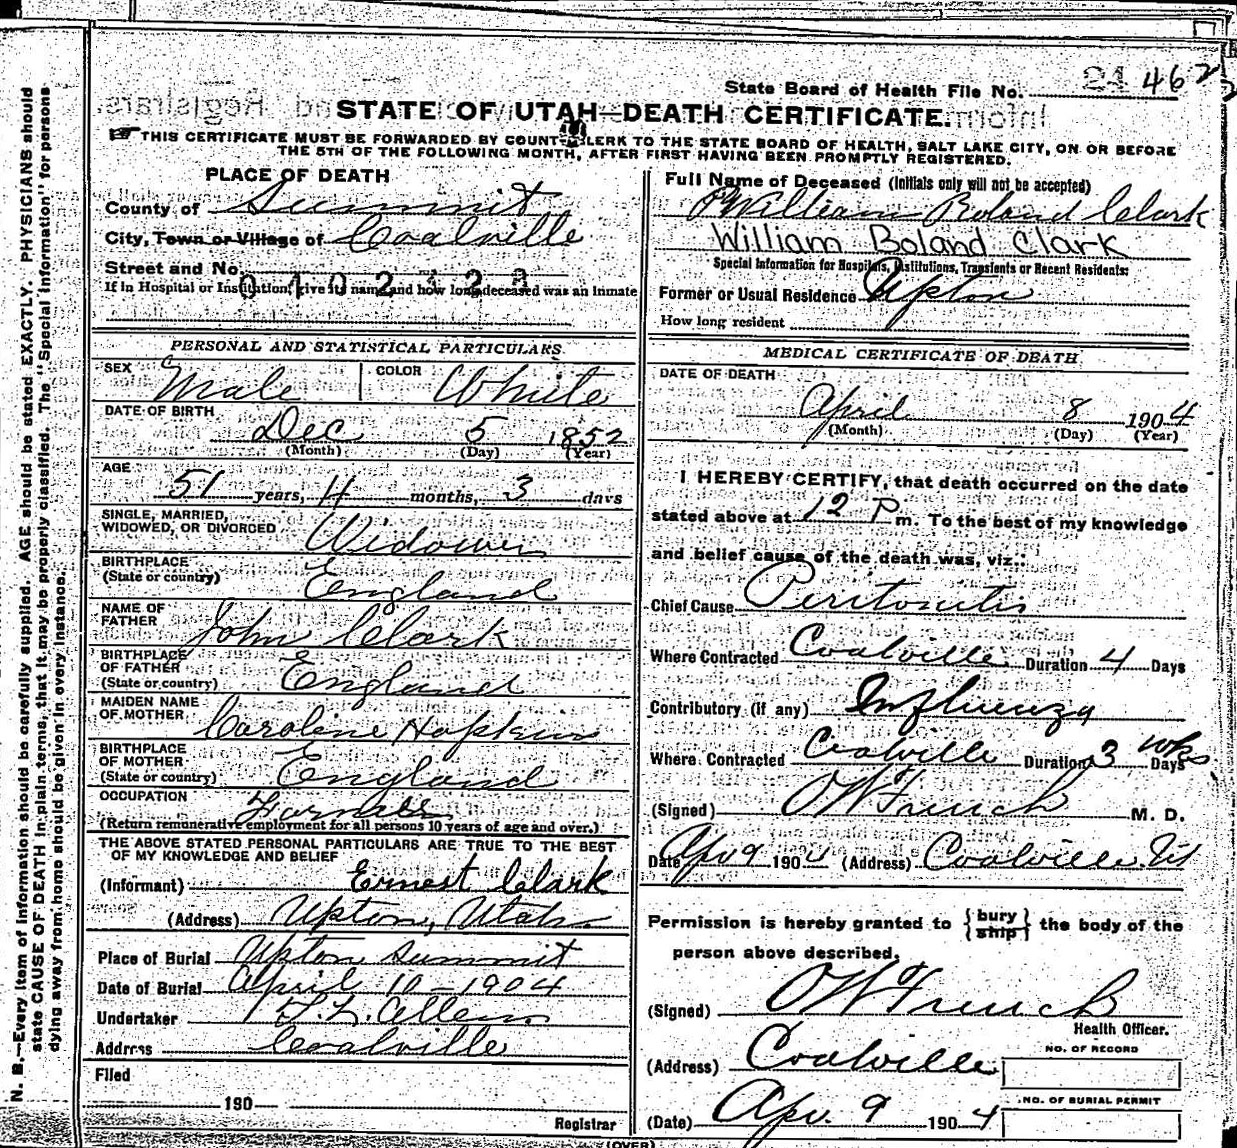 State Board of Health File No. 21 462
STATE OF UTAH—DEATH CERTIFICATE.
THIS CERTIFICATE MUST BE FORWARDED BY COUNTY CLERK TO THE STATE BOARD OF HEALTH, SALT LAKE CITY, ON OR BEFORE
THE 5TH OF THE FOLLOWING MONTH, AFTER FIRST HAVING BEEN PROMPTLY REGISTERED.
N. B.—Every item of information should be carefully supplied. AGE should be stated EXACTLY. PHYSICIANS should
state CAUSE OF DEATH in plain terms, that it may be properly classified. The "Special Information" for persons
dying away from home should be given in every instance.
PLACE OF DEATH
County of Summit
City, Town or Village of Coalville
Street and No.
0402423
If in Hospital or Institution, give its name and how long deceased was an inmate
PERSONAL AND STATISTICAL PARTICULARS
SEX Male COLOR White
DATE OF BIRTH
Dec 5 1852
(Month) (Day) (Year)
AGE
51 years, 4 months, 3 days
SINGLE, MARRIED,
WIDOWED, OR DIVORCED Widower
BIRTHPLACE
(State or country) England
NAME OF
FATHER John Clark
BIRTHPLACE
OF FATHER
(State or country) England
MAIDEN NAME
OF MOTHER Caroline Hopkins
BIRTHPLACE
OF MOTHER
(State or country) England
OCCUPATION Farmer
(Return remunerative employment for all persons 10 years of age and over.)
THE ABOVE STATED PERSONAL PARTICULARS ARE TRUE TO THE BEST
OF MY KNOWLEDGE AND BELIEF
(Informant) Ernest Clark
(Address) Upton, Utah
Place of Burial Upton Summit
Date of Burial April 10-1904
Undertaker Allen
Address Coalville
Filed
190
Registrar
Full Name of Deceased (Initials only will not be accepted)
William Boland Clark
William Boland Clark
Special Information for Hospitals, Institutions, Transients or Recent Residents:
Former or Usual Residence Upton
How long resident
MEDICAL CERTIFICATE OF DEATH
DATE OF DEATH
April 8 1904
(Month) (Day) (Year)
I HEREBY CERTIFY, that death occurred on the date
stated above at 12 P m. To the best of my knowledge
and belief cause of the death was, viz.:
Chief Cause Peritonitis
Where Contracted Coalville Duration 4 Days
Contributory (if any) Influenza
Where Contracted Coalville Duration 3 wks Days
(Signed) O W French M. D.
Date Apr 9 1904 (Address) Coalville Ut
Permission is hereby granted to { bury ship } the body of the
person above described.
(Signed) O W French
Health Officer.
(Address) Coalville
NO. OF RECORD
NO. OF BURIAL PERMIT
(Date) Apr. 9 1904
(OVER)